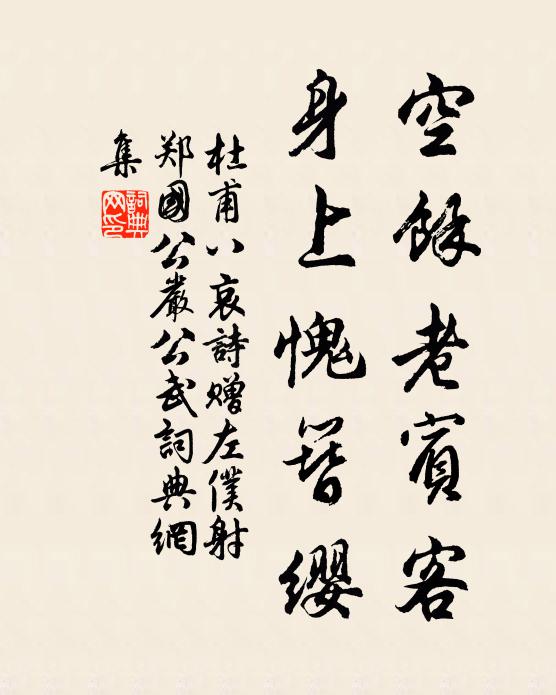 空餘老賓客
身上愧簪纓
杜甫八哀詩贈左僕射
郑國公嚴公武詞典網
集
詞典
网印